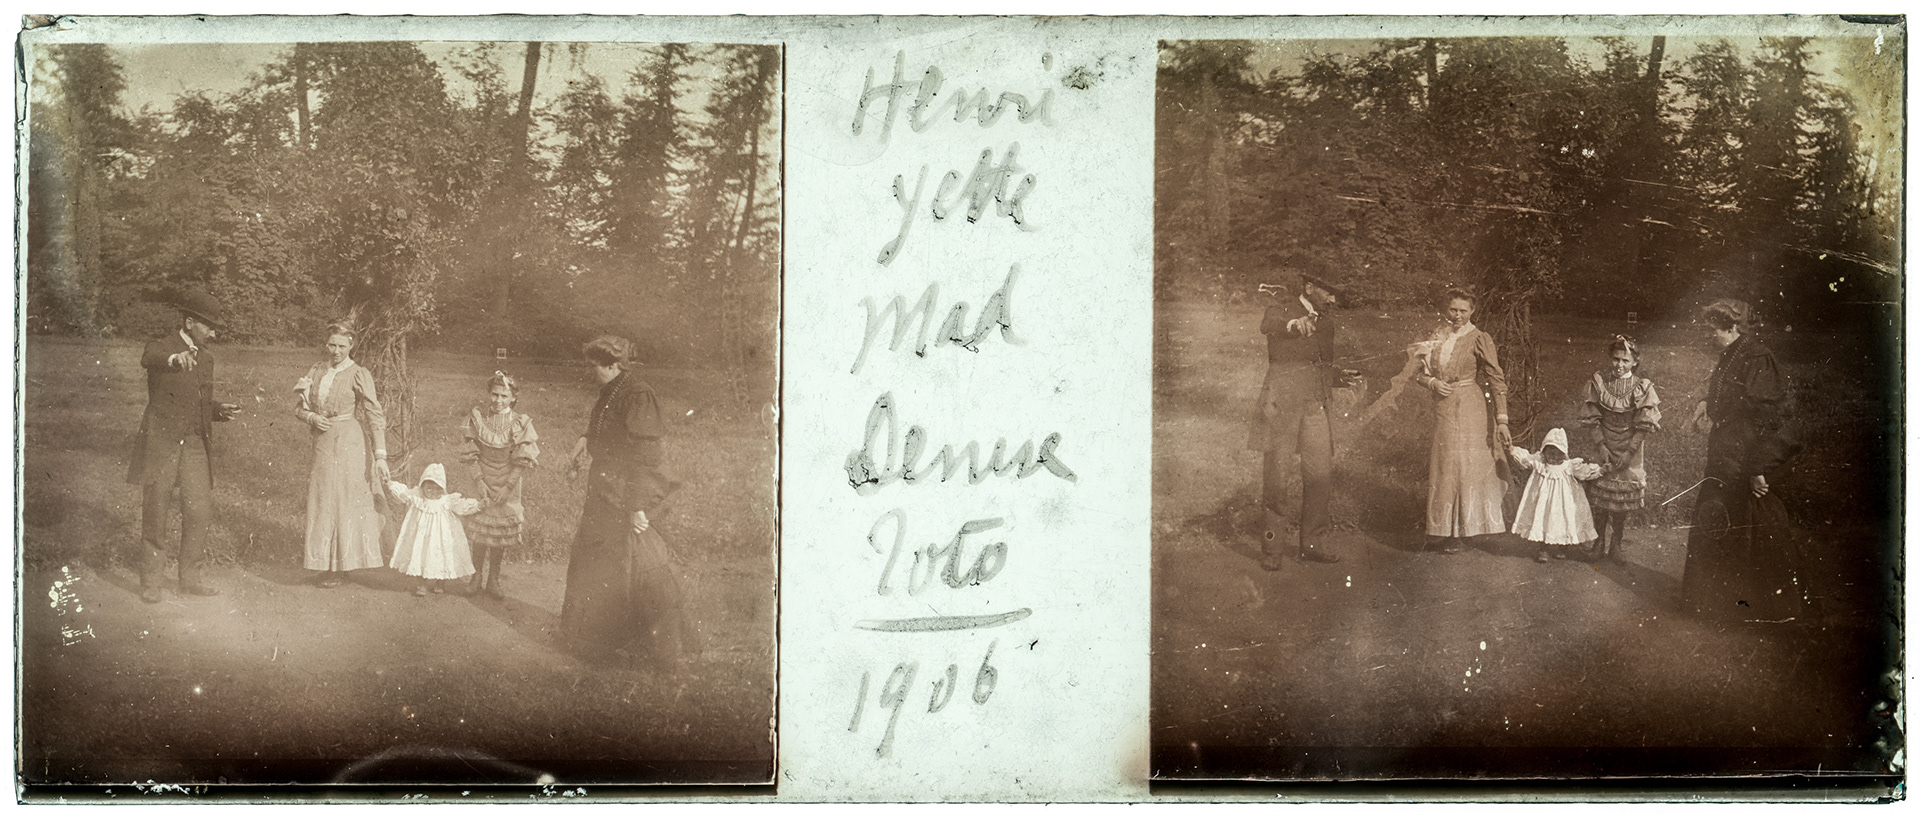 Henri
yette
Mad
Denise
Toto
1906